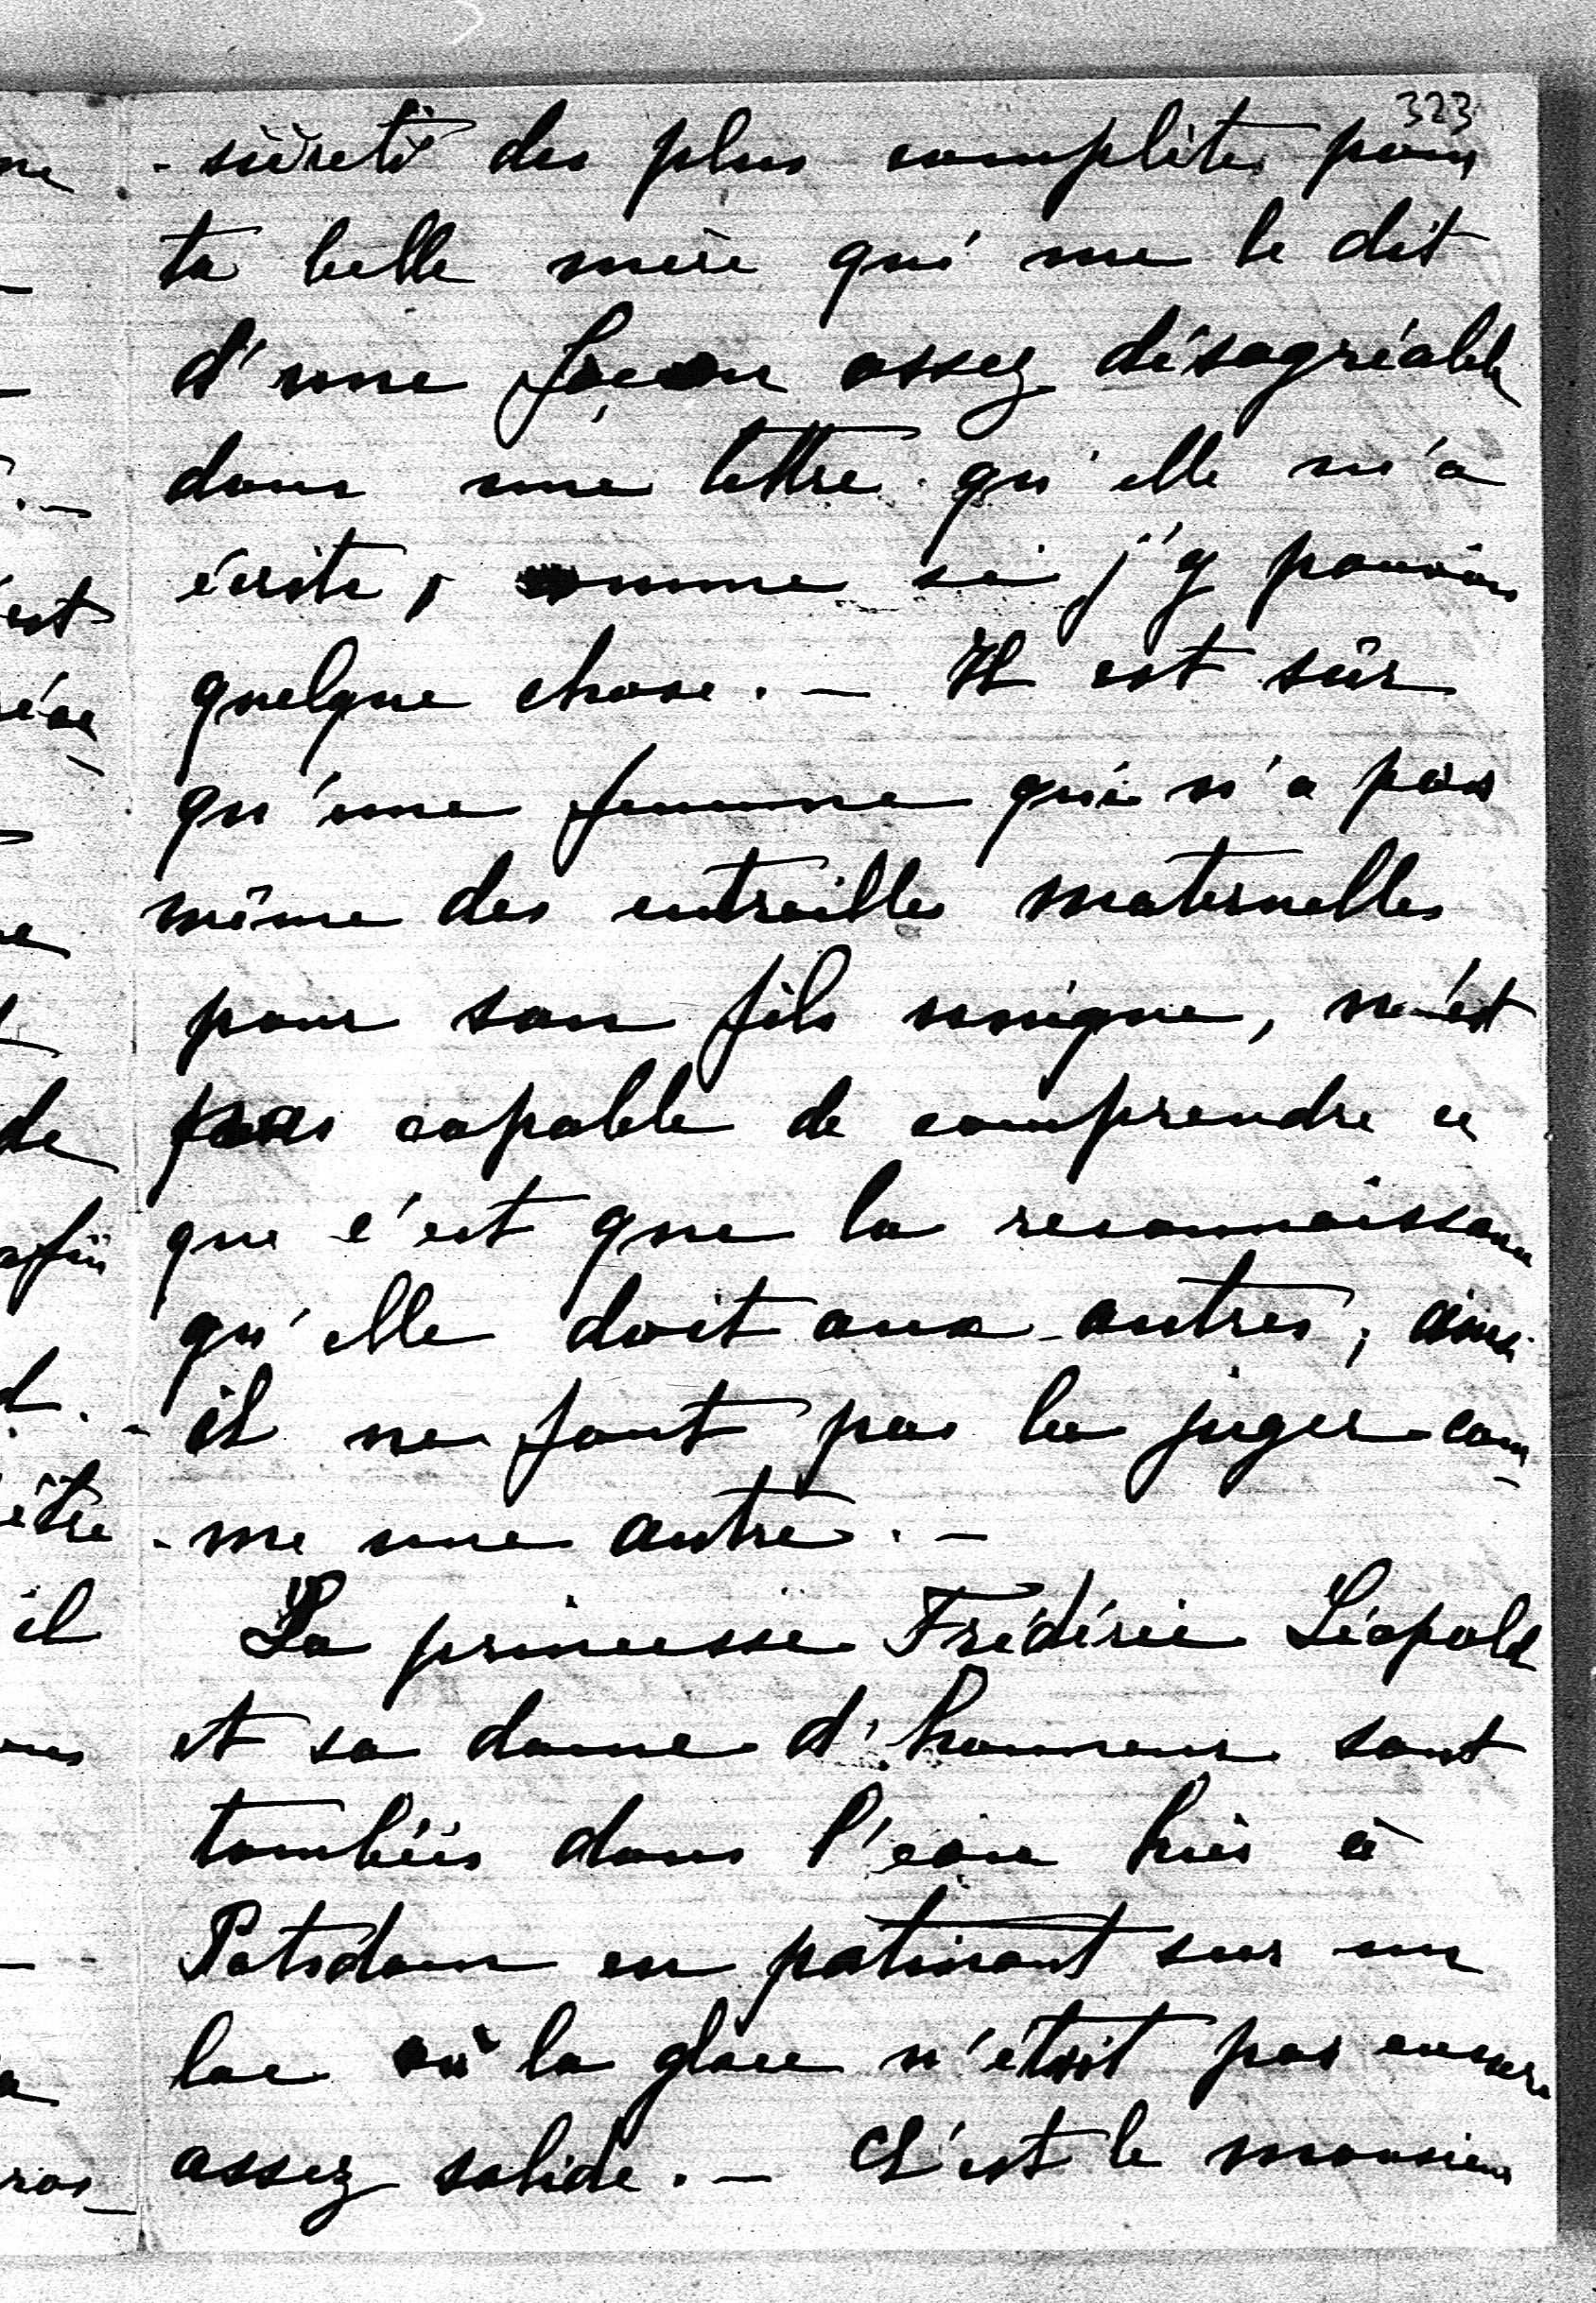 323
-sûreté des plus complètes pour
ta belle mère qui me le dit
d'une façon assez désagréable
dans une lettre qu'elle m'a
écrite, comme si j'y pouvais
quelque chose. — Il est sûr
qu'une femme qui n'a pas
même des entrailles maternelles
pour son fils unique, n'est
pas capable de comprendre ce
que c'est que la reconnaissance
qu'elle doit aux autres, ainsi
il ne faut pas la juger com-
-me une autre. —
La princesse Frédéric Léopold
et sa dame d'honneur sont
tombées dans l'eau hier à
Potsdam en patinant sur un
lac où la glace n'était pas encore
assez solide. — C'est le monsieur